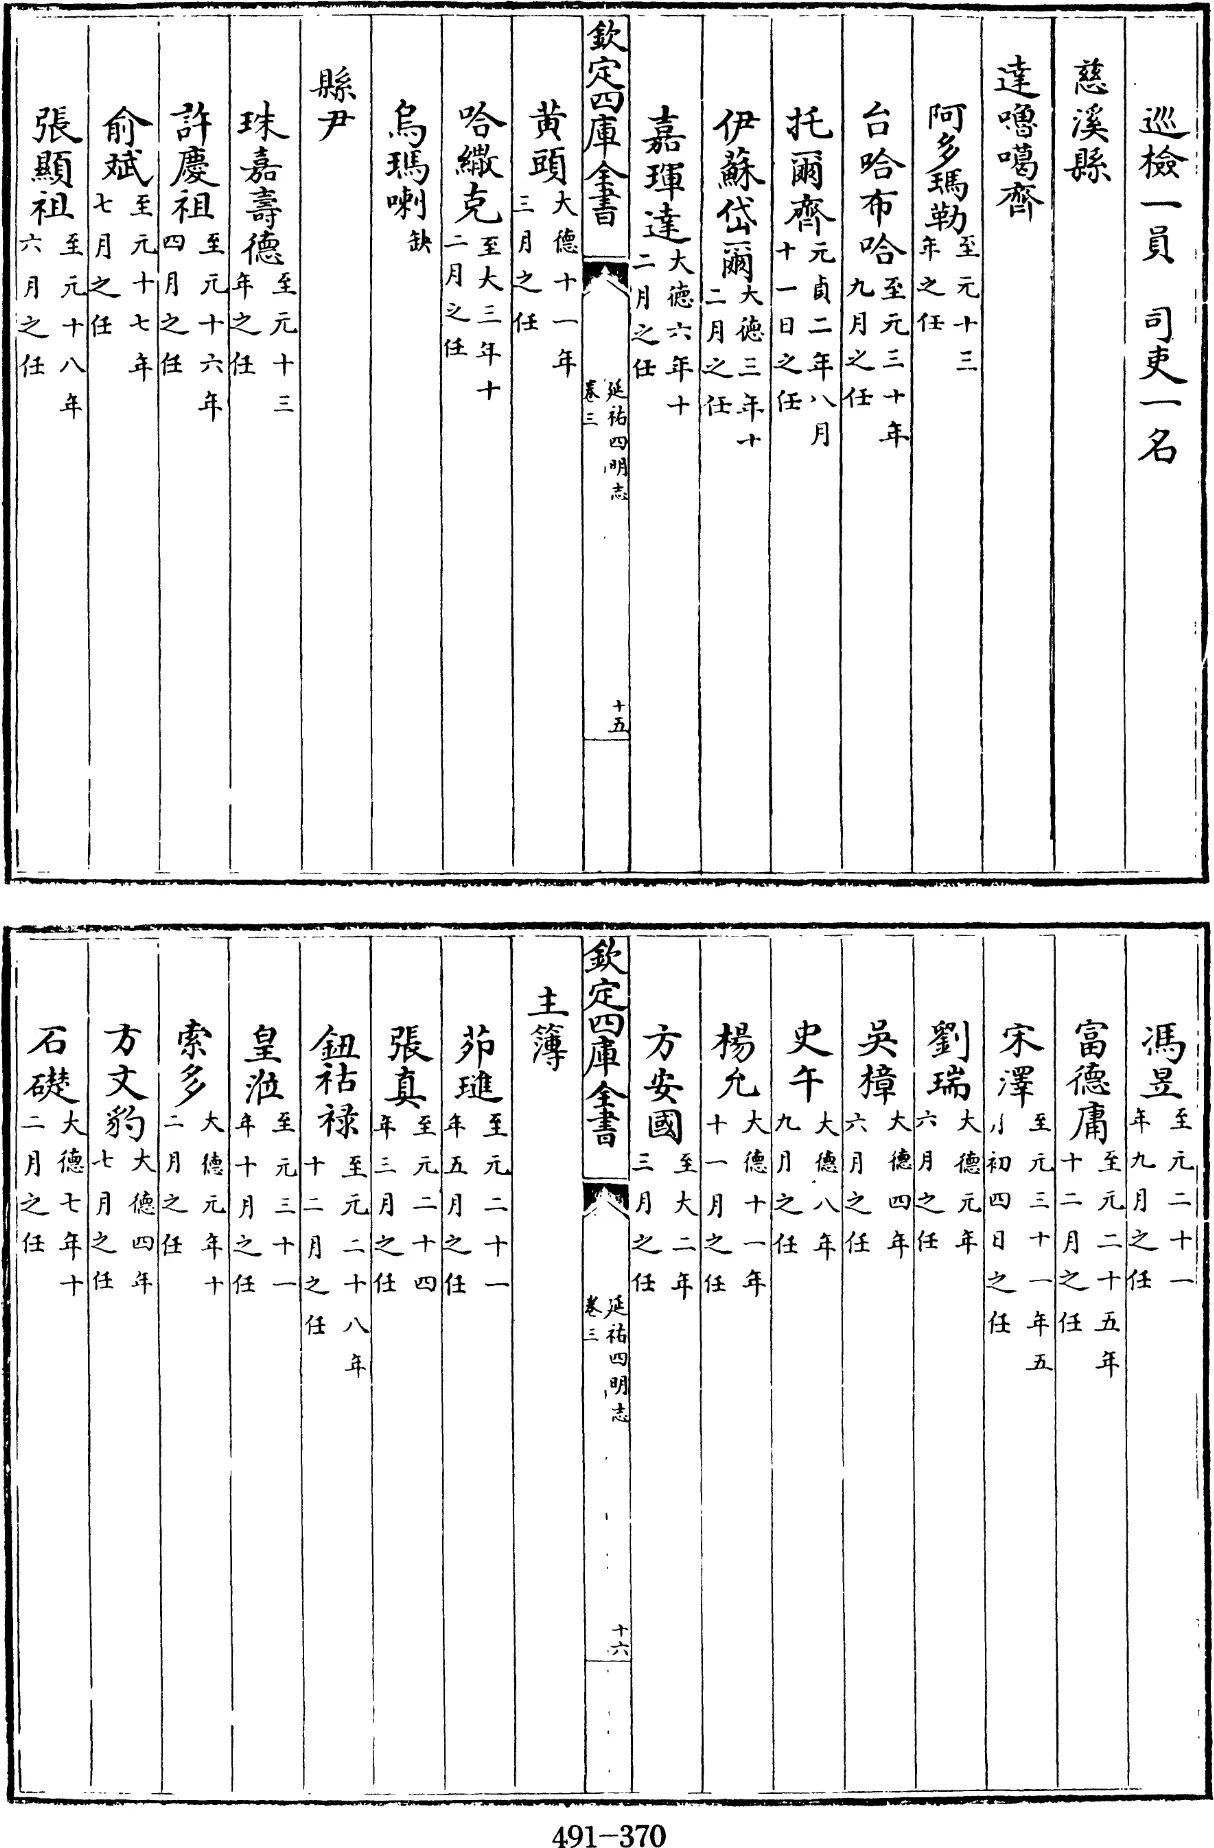 巡檢一員　司吏一名
慈溪縣
達嚕噶齊
阿多瑪勒至元十三年之任
台哈布哈至元三十年九月之任
托爾齊元貞二年八月十一日之任
伊蘇岱爾大德三年十二月之任
嘉琿達大德六年十二月之任
欽定四庫全書
延祐四明志
卷三
十五
黃頭大德十一年三月之任
哈繖克至大三年十二月之任
烏瑪喇缺
縣尹
珠嘉壽德至元十三年之任
許慶祖至元十六年四月之任
俞斌至元十七年七月之任
張顯祖至元十八年六月之任
馮昱至元二十一年九月之任
富德庸至元二十五年十二月之任
宋澤至元三十一年五月初四日之任
劉瑞大德元年六月之任
吳樟大德四年六月之任
史午大德八年九月之任
楊允大德十一年十一月之任
方安國至大二年三月之任
欽定四庫全書
延祐四明志
卷三
十六
主簿
茆璡至元二十一年五月之任
張真至元二十四年三月之任
鈕祜祿至元二十八年十二月之任
皇㳫至元三十一年十月之任
索多大德元年十二月之任
方文豹大德四年七月之任
石礎大德七年十二月之任
491-370